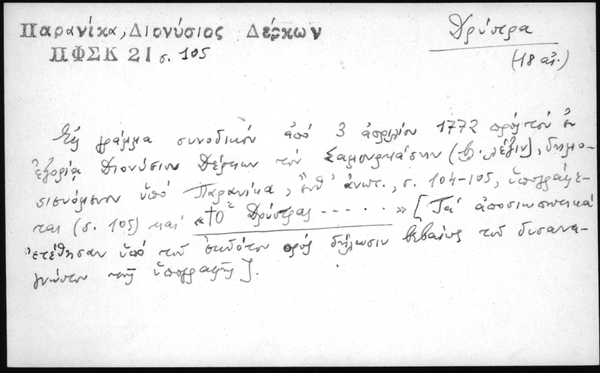 Παρανίκα, Διονύσιος Δέρκων
ΠΦΣΚ 21 σ. 105
Δρύστρα
(18 αἰ.)
Εἰς γράμμα συνοδικόν ἀπό 3 ἀπριλίου 1772 πρός τόν ἐν
ἐξορίᾳ Διονύσιον Δέρκων τόν (β. λέξιν), δημο-
σιευόμενον ὑπό Παρανίκα, ἔνθ' ἀνωτ., σ. 104-105, ὑπογράφε-
ται (σ. 105) καί «†Ὁ Δρύστρας ·····» [Τά ἀποσιωπητικά
ἐτέθησαν ὑπό τοῦ ἐκδότου πρός δήλωσιν βεβαίως τοῦ δυσανα-
γνώστου τῆς ὑπογραφῆς].